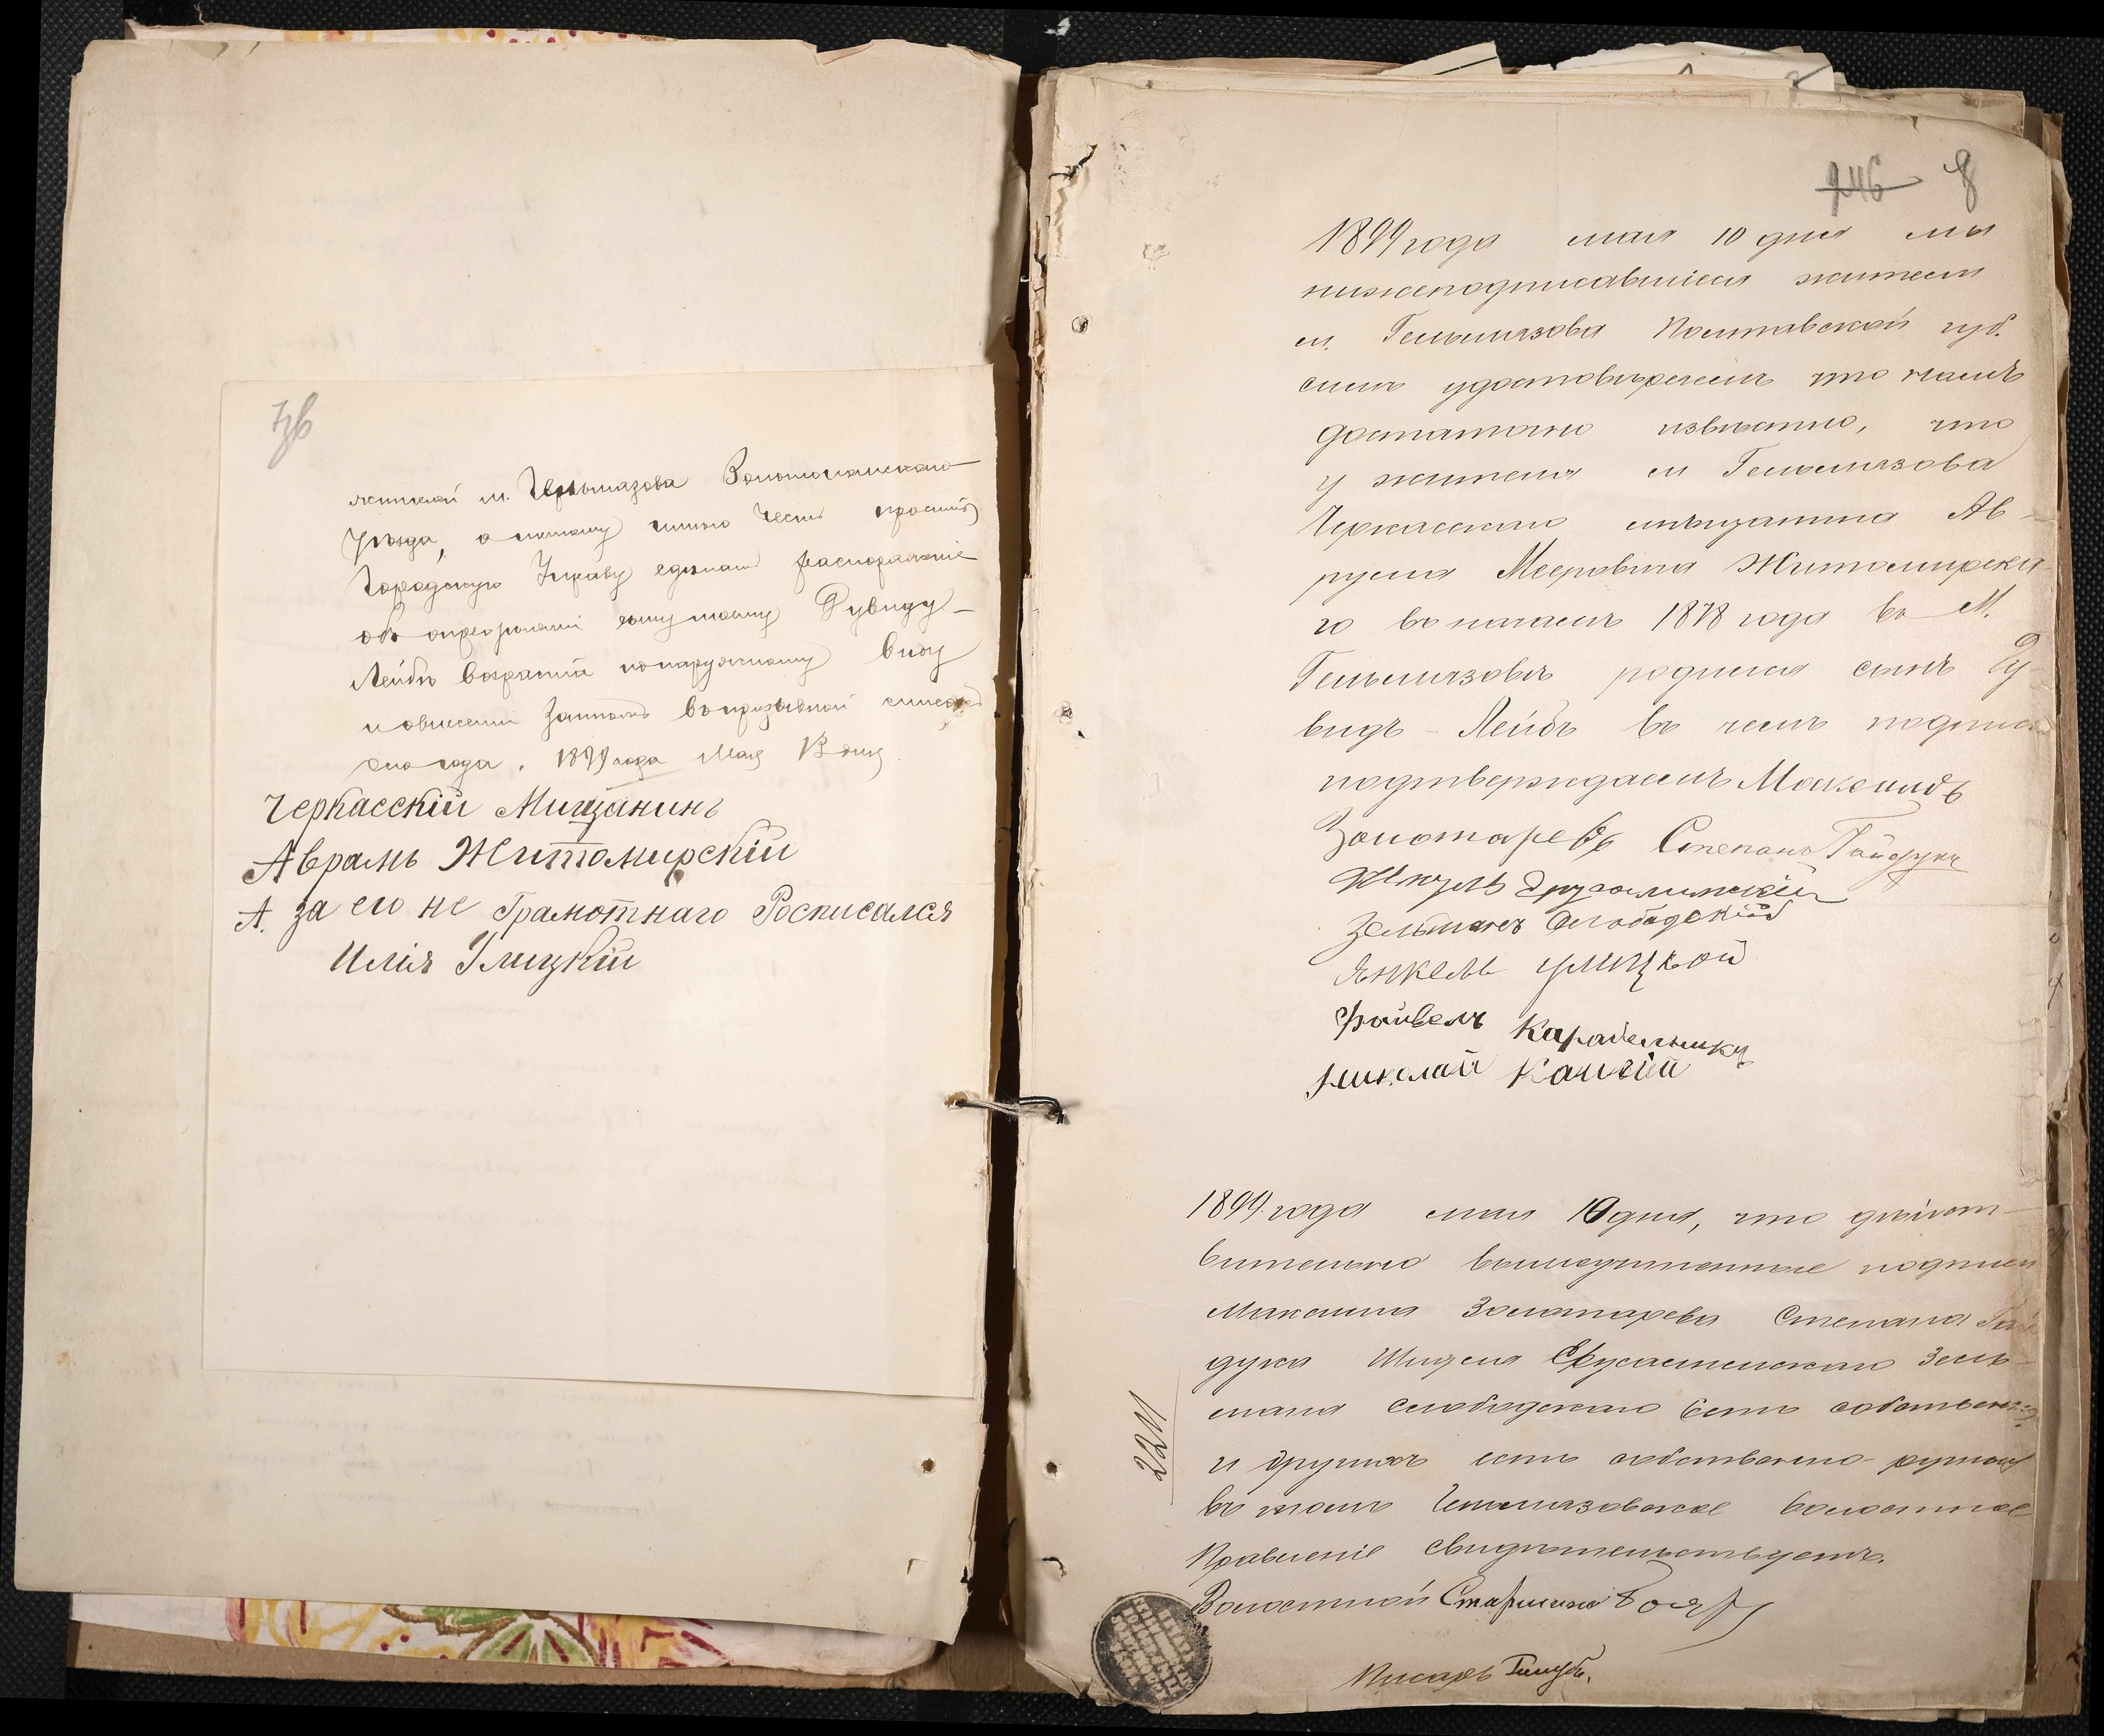 7об
жителей м. Гельмязова Золотоношскаго
уѣзда, а потому имею честь просить
Городскую Управу сделать распоряжение
объ определении сыну моему Дувиду-
Лейбѣ возраста по наружному виду
и о внесении затемъ въ призывной списокъ
сего года. 1899 года Мая 13 дня
Черкасскій Мищанинъ
Аврамъ Житомирскій
А за его не Грамотнаго Росписался
Илія Улицкій
946 8
1899 года мая 10 дня мы
нижеподписавшіеся жители
м. Гельмязова Полтавской губ.
симъ удостовѣряемъ что намъ
достаточно извѣстно, что
у жителя м Гельмязова
Черкасскаго мѣщанина Ав-
рума Мееровича Житомирска-
го въ началѣ 1878 года въ М.
Гельмязовѣ родился сынъ Ду-
видъ-Лейбъ въ чемъ подпис
подтверждаемъ Максимъ
Золотаревъ Степанъ Гайдукъ
Ерусалимскій
Зельманъ Слободской
Янкель Улицкой
Файвель Карабельникъ
Николай
1899 года мая 10 дня, что дѣйст-
вительно вышеучиненные подписи
Максима Золотарева Степана Гай
дука Шмуля Ерусалимскаго Зель-
мана Слободскаго есть собственно
и другихъ есть собственно-ручны
въ томъ Гельмязовское волостное
Правленіе свидѣтельствуетъ.
Волостной Старшина Бояръ
Писарь Голубъ.
2211